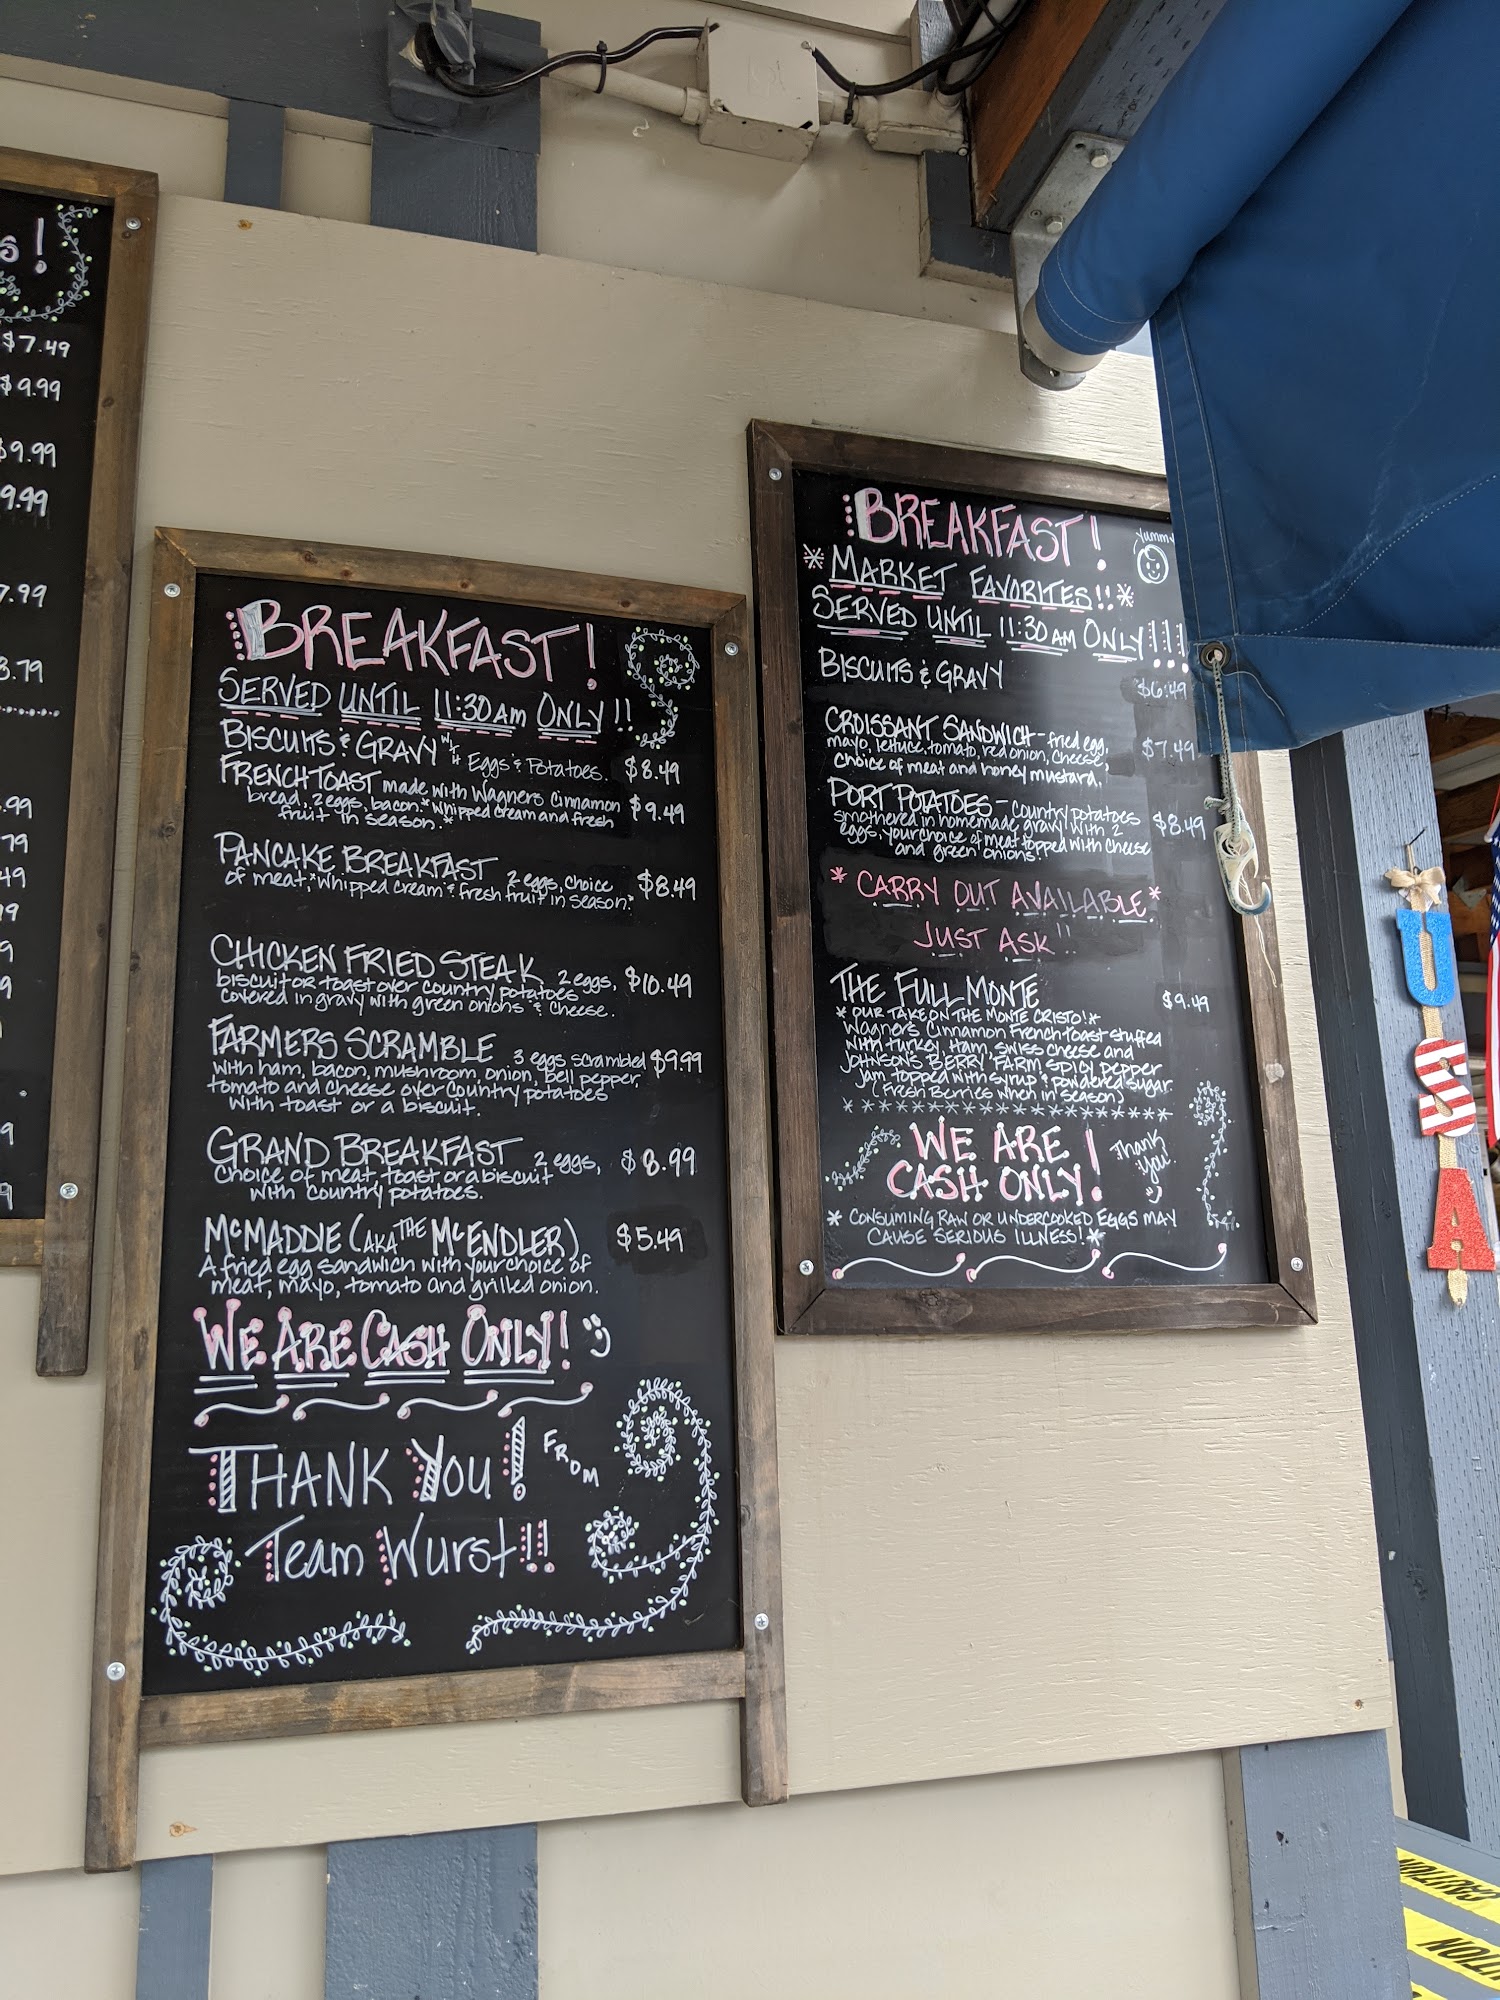 s!
$7.49
$9.99
$9.99
9.99
7.99
3.79
.99
79
49
9
9
9
9
9
BREAKFAST!
SERVED UNTIL 11:30AM ONLY!!
BISCUITS & GRAVY WITH EGGS & POTATOES. $8.49
FRENCH TOAST made with Wagners Cinnamon $9.49
bread, 2 eggs, bacon. *Whipped cream and fresh
fruit in season.*
PANCAKE BREAKFAST 2 eggs, choice $8.49
of meat. *Whipped cream & fresh fruit in season.*
CHICKEN FRIED STEAK 2 eggs, $10.49
biscuit or toast over country potatoes
covered in gravy with green onions & cheese.
FARMERS SCRAMBLE 3 eggs scrambled $9.99
with ham, bacon, mushroom, onion, bell pepper,
tomato and cheese over country potatoes
with toast or a biscuit.
GRAND BREAKFAST 2 eggs, $8.99
Choice of meat, toast or a biscuit
with country potatoes.
McMADDIE (AKA THE McENDLER) $5.49
A fried egg sandwich with your choice of
meat, mayo, tomato and grilled onion.
WE ARE CASH ONLY!
THANK YOU! FROM
Team Wurst!!
BREAKFAST!
Yumm
*MARKET FAVORITES!!*
SERVED UNTIL 11:30AM ONLY!!!
BISCUITS & GRAVY $6.49
CROISSANT SANDWICH - fried egg, $7.49
mayo, lettuce, tomato, red onion, cheese,
choice of meat and honey mustard.
PORT POTATOES - country potatoes $8.49
smothered in homemade gravy with 2
eggs, your choice of meat topped with cheese
and green onions!!
*CARRY OUT AVAILABLE*
JUST ASK!!
THE FULL MONTE $9.49
*OUR TAKE ON THE MONTE CRISTO!*
Wagners Cinnamon French toast stuffed
with turkey, ham, swiss cheese and
JOHNSON'S BERRY FARM spicy pepper
jam topped with syrup & powdered sugar
(Fresh Berries when in season)
WE ARE
CASH ONLY!
Thank
You!
*CONSUMING RAW OR UNDERCOOKED EGGS MAY
CAUSE SERIOUS ILLNESS!*
USA
CAUTION
UTION